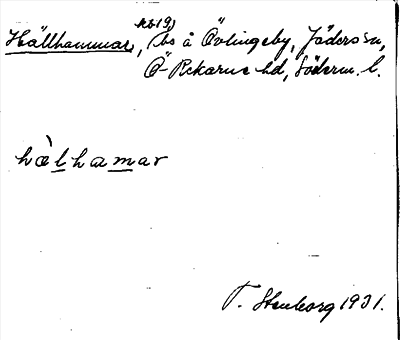 Hällhammar, bs å Övlingeby, Jäders sn,
Ö-Rekarne hd, Söderm. l.
hæ̀lhamar
T. Stenborg 1931.